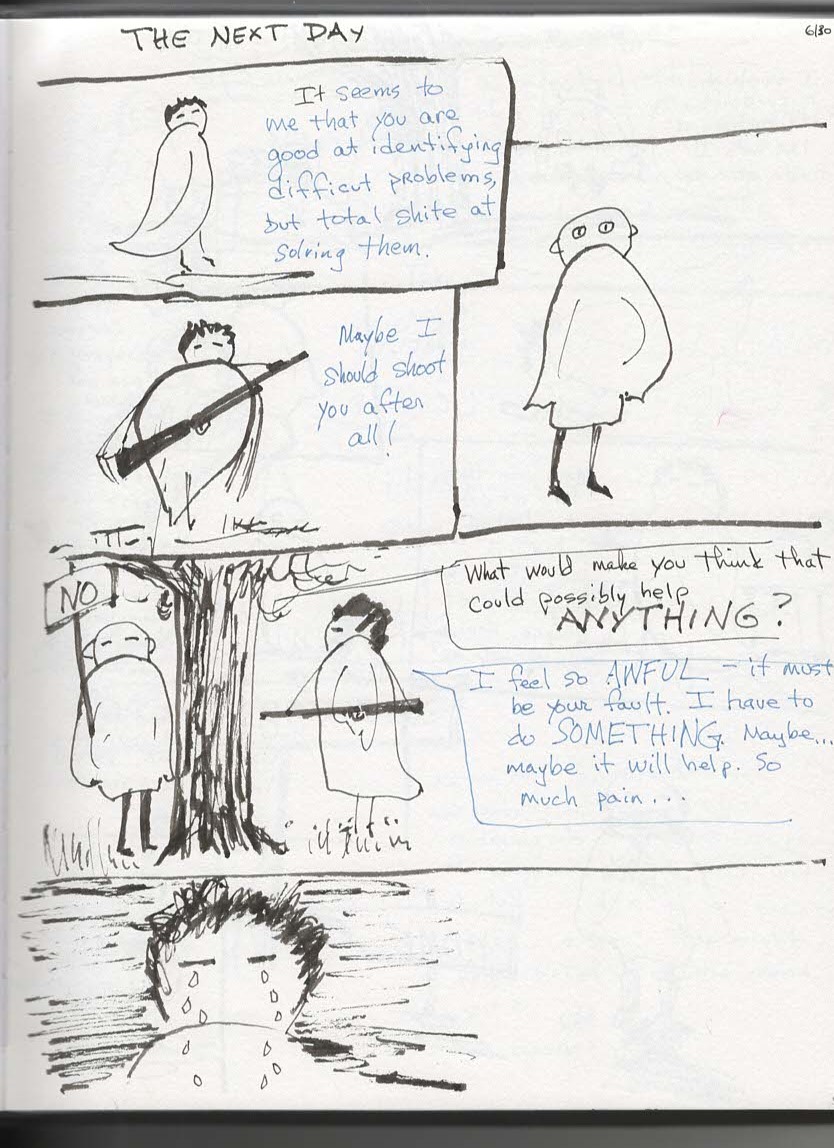 THE NEXT DAY
6/30
It seems to
me that you are
good at identifying
difficut problems,
but total shite at
solving them.
Maybe I
should shoot
you after
all!
NO
What would make you think that
could possibly help
ANYTHING?
I feel so AWFUL - it must
be your fault. I have to
do SOMETHING. Maybe...
maybe it will help. So
much pain...